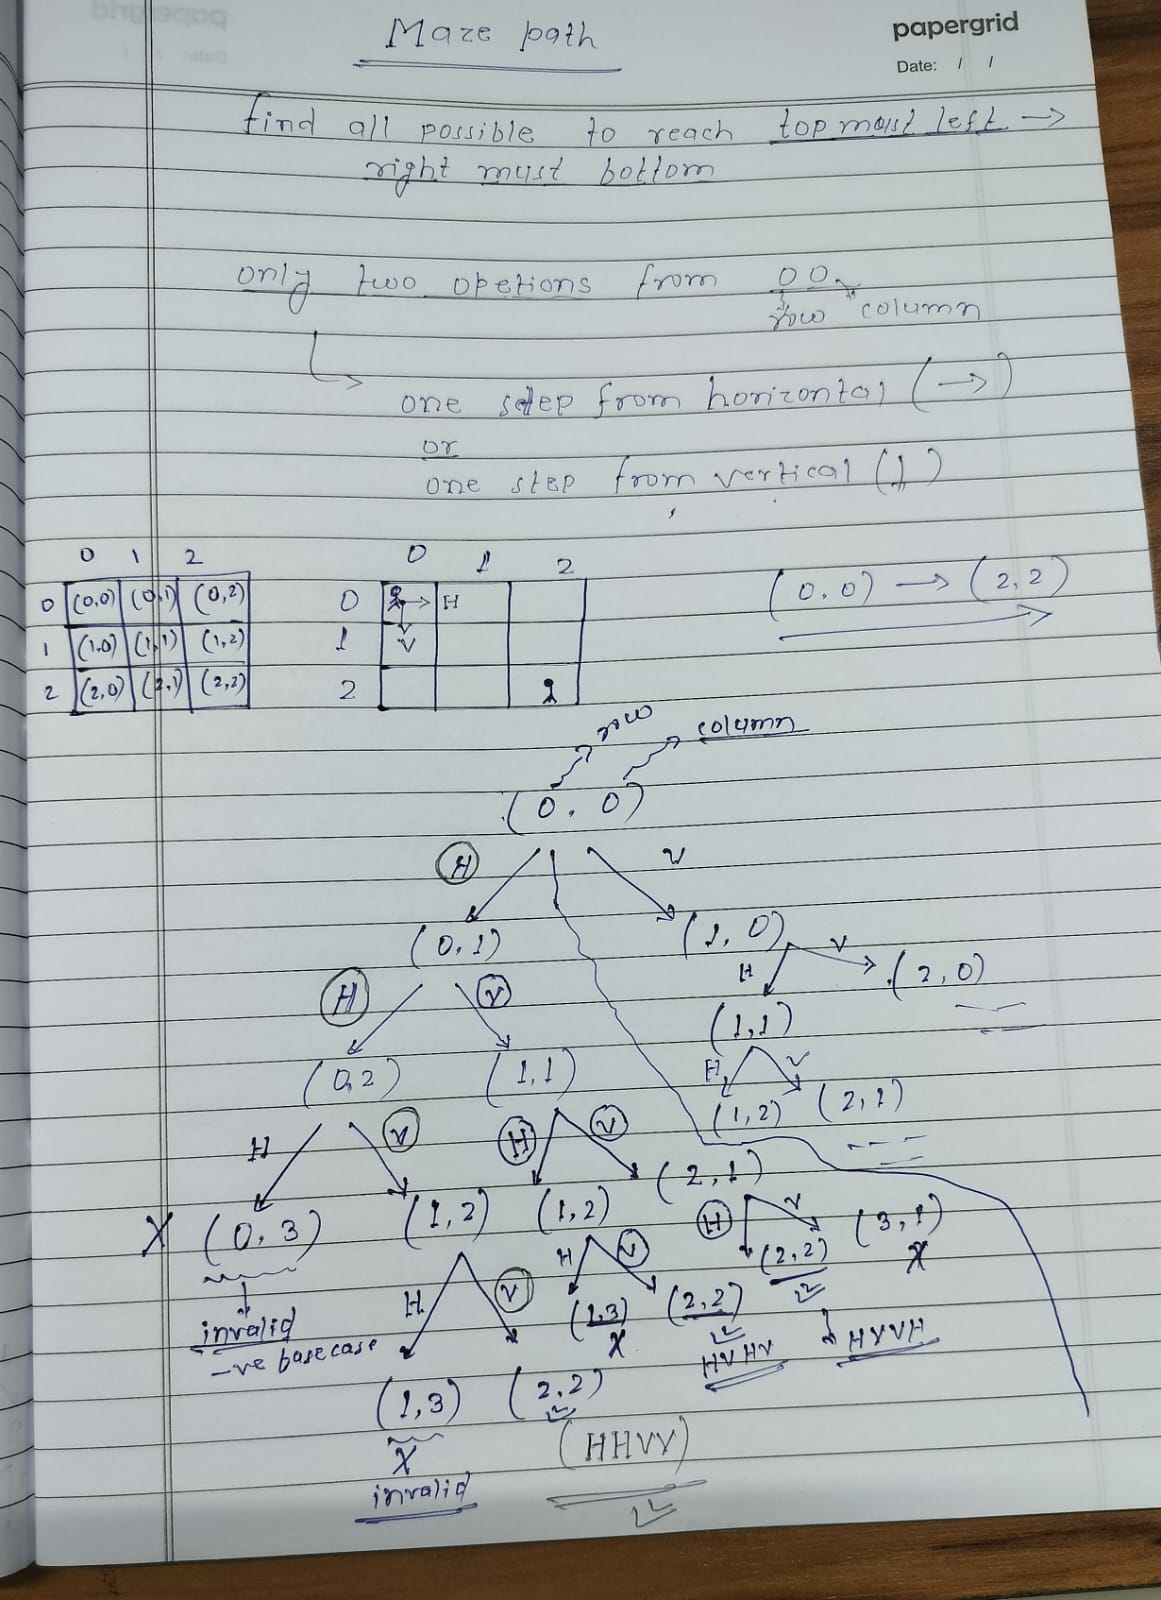 Maze path
papergrid
Date: / /
find all possible to reach top most left →
right most bottom
only two opetions from 00
row column
one step from horizontal (→)
or
one step from vertical (↓)
0 1 2
0 (0,0) (0,1) (0,2)
1 (1,0) (1,1) (1,2)
2 (2,0) (2,1) (2,2)
0 1 2
0 → H
1 V
2
(0,0) → (2,2)
row column
(0,0)
H V
(0,1) (1,0)
H V
(1,1) (2,0)
H V
(0,2) (1,1)
H V
(1,2) (2,1)
H V H V
X (0,3) (1,2) (1,2) (2,1)
invalid
-ve base case
H V H V H V
(1,3) (2,2) (2,2) (3,1)
X X
HVHV HVVH
(1,3) (2,2)
X
invalid
(HHVV)